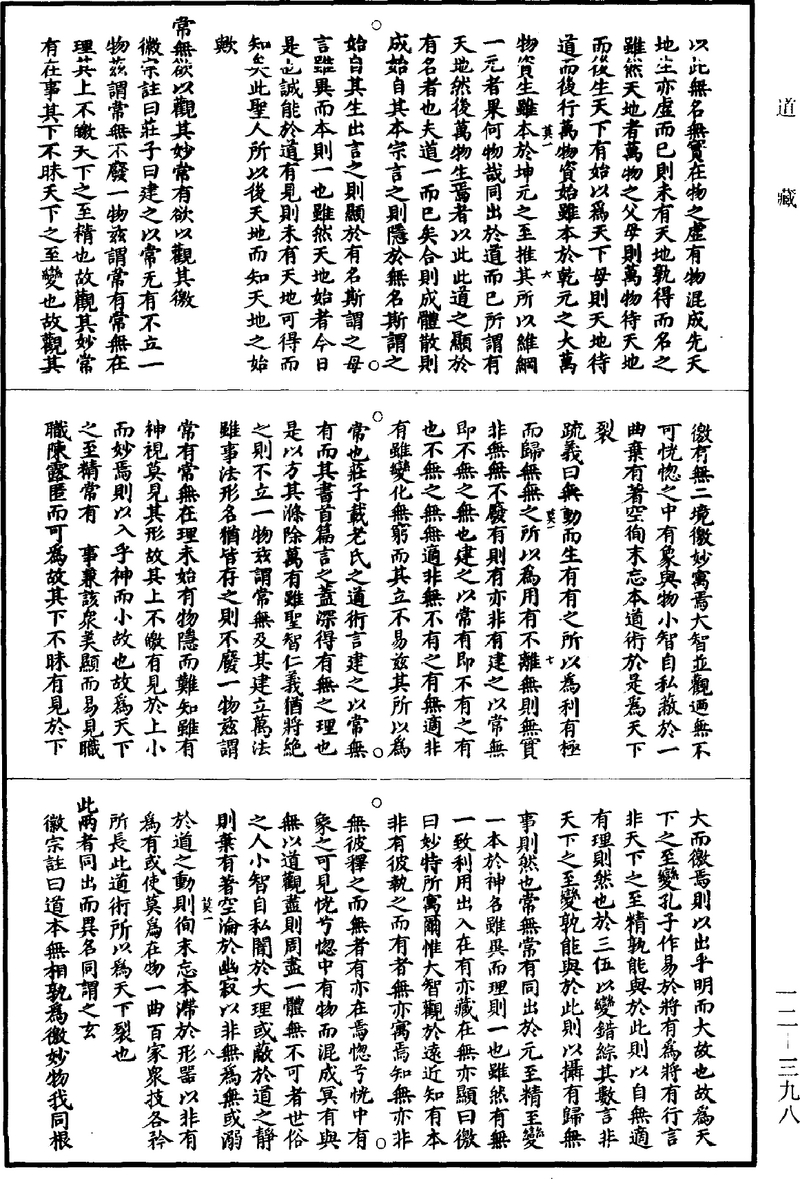 道藏
以此無名無實在物之虛有物混成先天
地生亦虛而已則未有天地孰得而名之
雖然天地者萬物之父母則萬物待天地
而後生天下有始以為天下母則天地待
道而後行萬物資始雖本於乾元之大萬
莫一
六
物資生雖本於坤元之至推其所以維綱
一元者果何物哉同出於道而已所謂有
天地然後萬物生焉者以此此道之顯於
有名者也夫道一而已矣合則成體散則
成始自其本宗言之則隱於無名斯謂之
始自其生出言之則顯於有名斯謂之母
言雖異而本則一也雖然天地始者今日
是也誠能於道有見則未有天地可得而
知矣此聖人所以後天地而知天地之始
歟
常無欲以觀其妙常有欲以觀其徼
徽宗註曰莊子曰建之以常无有不立一
物茲謂常無不廢一物茲謂常有常無在
理其上不皦天下之至精也故觀其妙常
有在事其下不昧天下之至變也故觀其
徼有無二境徼妙寓焉大智並觀迺無不
可恍惚之中有象與物小智自私蔽於一
曲棄有著空徇末忘本道術於是為天下
裂
疏義曰無動而生有有之所以為利有極
莫一
七
而歸無無之所以為用有不離無則無實
非無無不廢有則有亦非有建之以常無
即不無之無也建之以常有即不有之有
也不無之無無適非無不有之有無適非
有雖變化無窮而其立不易茲其所以為
常也莊子載老氏之道術言建之以常無
有而其書首篇言之蓋深得有無之理也
是以方其滌除萬有雖聖智仁義猶將絕
之則不立一物茲謂常無及其建立萬法
雖事法形名猶皆存之則不廢一物茲謂
常有常無在理未始有物隱而難知雖有
神視莫見其形故其上不皦有見於上小
而妙焉則以入乎神而小故也故為天下
之至精常有 事兼該眾美顯而易見職
職陳露匿而可為故其下不昧有見於下
大而徼焉則以出乎明而大故也故為天
下之至變孔子作易於將有為將有行言
非天下之至精孰能與於此則以自無適
有理則然也於三伍以變錯綜其數言非
天下之至變孰能與於此則以攝有歸無
事則然也常無常有同出於元至精至變
一本於神名雖異而理則一也雖然有無
一致利用出入在有亦藏在無亦顯曰徼
曰妙特所寓爾惟大智觀於遠近知有本
非有彼執之而有者無亦寓焉知無亦非
無彼釋之而無者有亦在焉惚兮恍中有
象之可見恍兮惚中有物而混成冥有與
無以道觀盡則周盡一體無不可者世俗
之人小智自私闇於大理或蔽於道之靜
則棄有著空淪於幽寂以非無為無或溺
莫一
八
於道之動則徇末忘本滯於形器以非有
為有或使莫為在物一曲百家眾技各矜
所長此道術所以為天下裂也
此兩者同出而異名同謂之玄
徽宗註曰道本無相孰為徼妙物我同根
一二－三九八